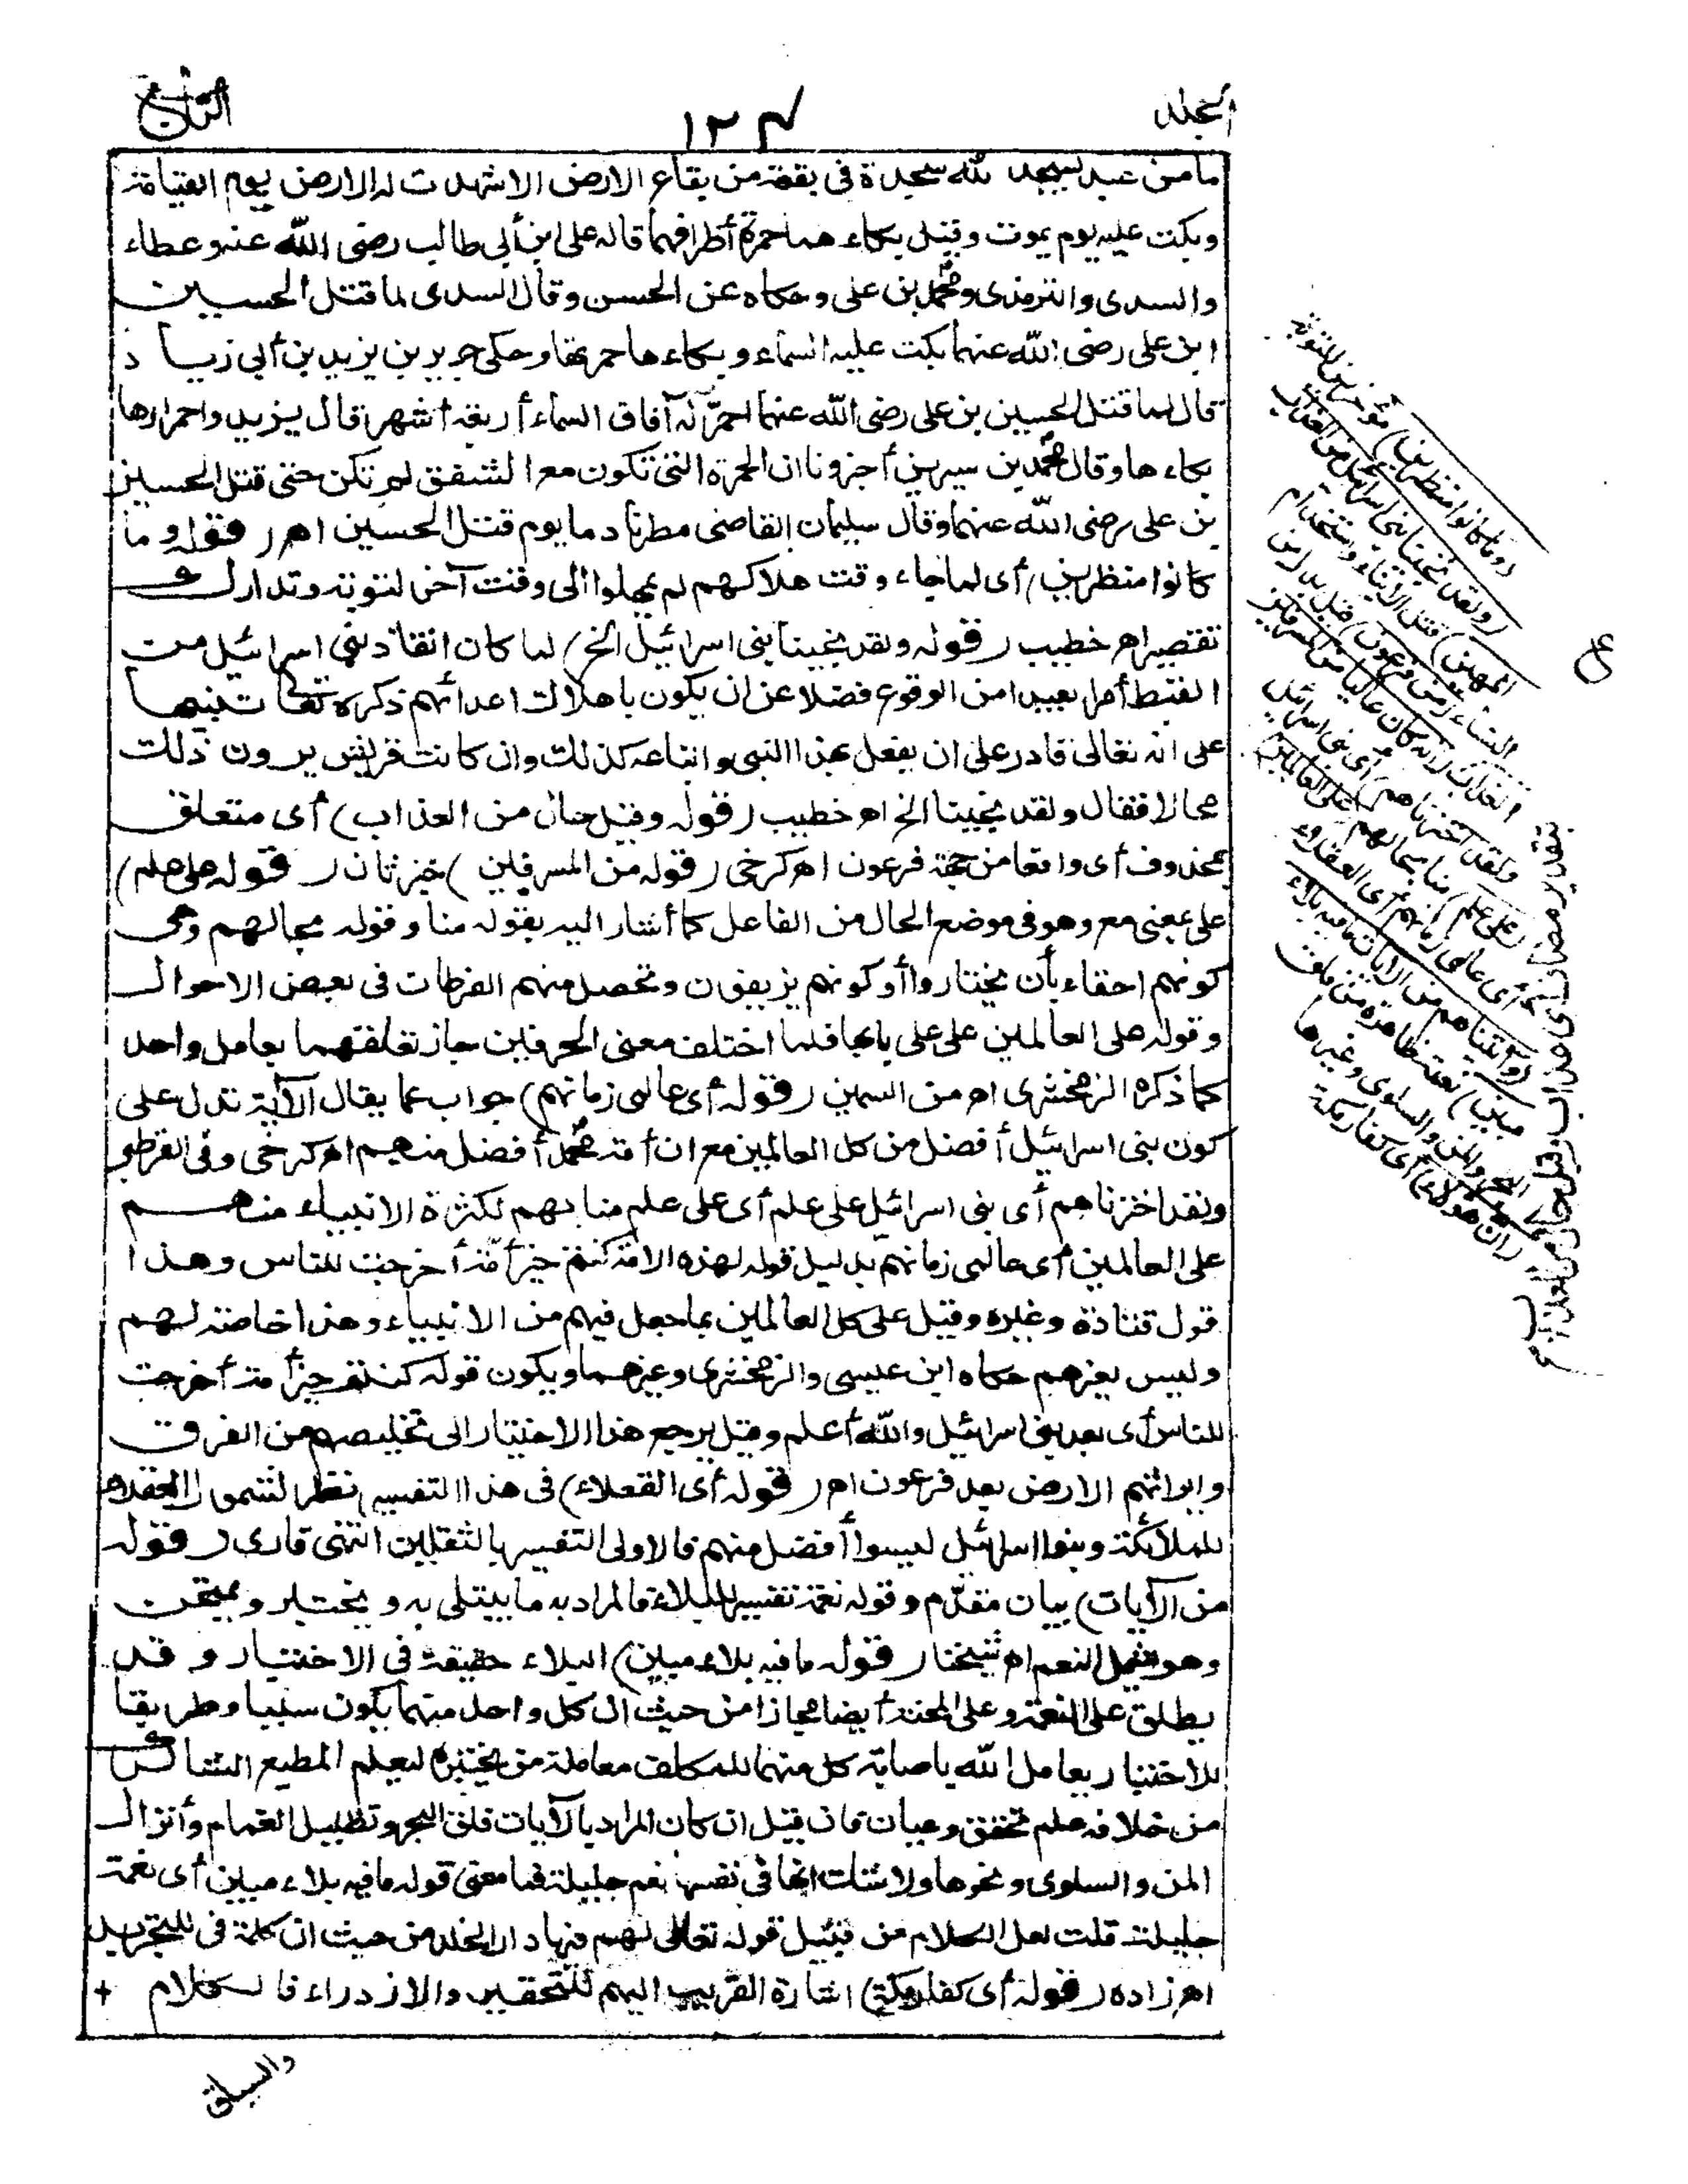 المجلد
١٢٤
الرابع
ما من عبد يسجد لله سجدة فى بقعة من بقاع الارض الا شهدت له الارض يوم القيامة
وبكت عليه يوم يموت وقيل بكاءهما حمرة أطرافهما قاله على ابن أبى طالب رضى الله عنه وعطاء
والسدى والترمذى ومحمد بن على وحكاه عن الحسن وقال السدى لما قتل الحسين
ابن على رضى الله عنهما بكت عليه السماء وبكاءها حمرتها وحكى جرير بن يزيد بن أبى زياد
قال لما قتل الحسين بن على رضى الله عنهما احمرّ له آفاق السماء أربعة أشهر قال يزيد واحمرارها
بكاءها وقال محمد بن سيرين أخبرونا ان الحمرة التى تكون مع الشفق لم تكن حتى قتل الحسين
بن على رضى الله عنهما وقال سليمان القاضى مطرنا دما يوم قتل الحسين اهـ (قوله وما
كانوا منظرين) أى لما جاء وقت هلاكهم لم يمهلوا الى وقت آخر لتوبة وتدارك
تقصير اهـ خطيب (قوله ولقد نجينا بنى اسرائيل الخ) لما كان انقاذ بنى اسرائيل من
القبط أمرا بعيدا من الوقوع فضلا عن ان يكون باهلاك اعدائهم ذكره تعالى تنبيها
على انه تعالى قادر على ان يفعل بهذا النبى واتباعه كذلك وان كانت قريش يرون ذلك
محالا فقال ولقد نجينا الخ اهـ خطيب (قوله وقيل حال من العذاب) أى متعلق
بمحذوف أى واقعا من جهة فرعون اهـ كرخى (قوله من المسرفين) خبر ثان (قوله على علم)
على بمعنى مع وهو فى موضع الحال من الفاعل كما أشار اليه بقوله منا وقوله بحالهم وهى
كونهم احقاء بأن يختاروا أو كونهم يزيغون وتحصل منهم الفرطات فى بعض الاحوال
وقوله على العالمين على على بابها فلما اختلف معنى الحرفين جاز تعلقهما بعامل واحد
كما ذكره الزمخشرى اهـ من السمين (قوله أى عالمى زمانهم) جواب عما يقال الآية تدل على
كون بنى اسرائيل أفضل من كل العالمين مع ان أمة محمد أفضل منهم اهـ كرخى وفى القرطبى
ولقد اخترناهم أى بنى اسرائيل على علم أى على علم منا بهم لكثرة الانبياء منهم
على العالمين أى عالمى زمانهم بدليل قوله لهذه الامة كنتم خير أمّة أخرجت للناس وهذا
قول قتادة وغيره وقيل على كل العالمين بما جعل فيهم من الانبياء وهذا خاصة لهم
وليس لغيرهم حكاه ابن عيسى والزمخشرى وغيرهما ويكون قوله كنتم خير أمة أخرجت
للناس أى بعد بنى اسرائيل والله أعلم وقيل يرجع هذا الاختيار الى تخليصهم من الغرق
وايراثهم الارض بعد فرعون اهـ (قوله أى العقلاء) فى هذا التفسير نظر لشمول العقلاء
للملائكة وبنوا اسرائيل ليسوا أفضل منهم فالاولى التفسير بالثقلين انتهى قارى (قوله
من الآيات) بيان مقدّم وقوله نعمة تفسير للبلاء فالمراد به ما يبتلى به ويختبر ويمتحن
وهو يشمل النعم اهـ شيخنا (قوله ما فيه بلاء مبين) البلاء حقيقة فى الاختبار وقد
يطلق على النعمة وعلى المحنة أيضا مجازا من حيث ان كل واحد منهما يكون سببا وطريقا
للاختبار يعامل الله باصابة كل منهما للمكلف معاملة من يختبره ليعلم المطيع الشاكر
من خلافه علم تحقق وعيان فان قيل ان كان المراد بالآيات فلق البحر وتظليل الغمام وأنزال
المن والسلوى ونحوها ولا شك انها فى نفسها نعم جليلة فما معنى قوله ما فيه بلاء مبين أى نعمة
جليلة قلت لعل الكلام من قبيل قوله تعالى لهم فيها دار الخلد من حيث ان كلمة فى للتجريد
اهـ زاده (قوله أى كفار مكة) اشارة القريب اليهم للتحقير والازدراء فالكلام +
(وما كانوا منظرين) مؤخرين للتوبة
(ولقد نجينا بنى اسرائيل من العذاب
المهين) قتل الابناء واستخدام
النساء (من فرعون) قيل بدل من
العذاب (انه كان عاليا من المسرفين
ولقد اخترناهم) أى بنى اسرائيل
(على علم) منا بحالهم (على العالمين)
أى عالمى زمانهم أى العقلاء
(وآتيناهم من الآيات ما فيه بلاء
مبين) نعمة ظاهرة من فلق
البحر والمن والسلوى وغيرها
(ان هؤلاء) أى كفار مكة
بتقدير مضاف أى عذاب وقيل حال من العذاب
ع